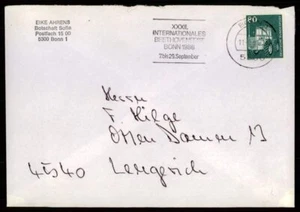 EIKE AHRENS
Botschaft Sofia
Postfach 15 00
5300 Bonn 1
XXXII.
INTERNATIONALES
BEETHOVENFEST
BONN 1986
7. bis 29. September
Herrn
F. Hilge
Otten Damm 13
4540 Lengerich